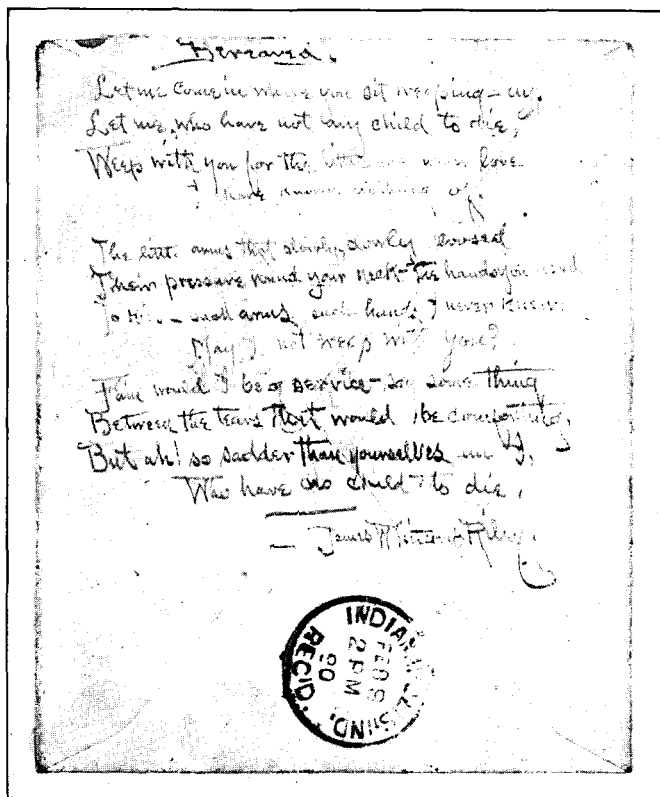 Bereaved.
Let me come in where you sit weeping — ay,
Let me, who have not any child to die,
Weep with you for the little one whose love
I have known nothing of.
The little arms that slowly, slowly loosed
Their pressure round your neck — the hands you used
To kiss — such arms, such hands I never knew.
May I not weep with you?
Fain would I be of service — say some thing
Between the tears, that would be comforting,
But ah! so sadder than yourselves am I,
Who have no child to die.
— James Whitcomb Riley.
INDIANAPOLIS, IND.
FEB 8
2 PM
90
REC'D.